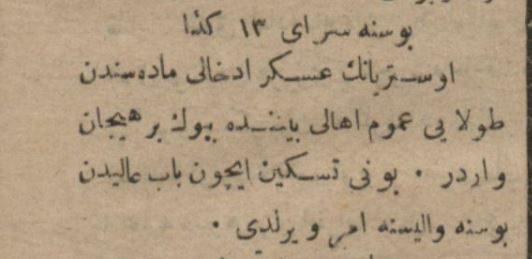 بوسنه سرای ١٣ كذا
اوستريانك عسكر ادخالی ماده‌سندن
طولايی عموم اهالی بيننده بيوك بر هيجان
واردر . بونی تسكين ايچون باب عاليدن
بوسنه واليسنه امر ويرلدی .